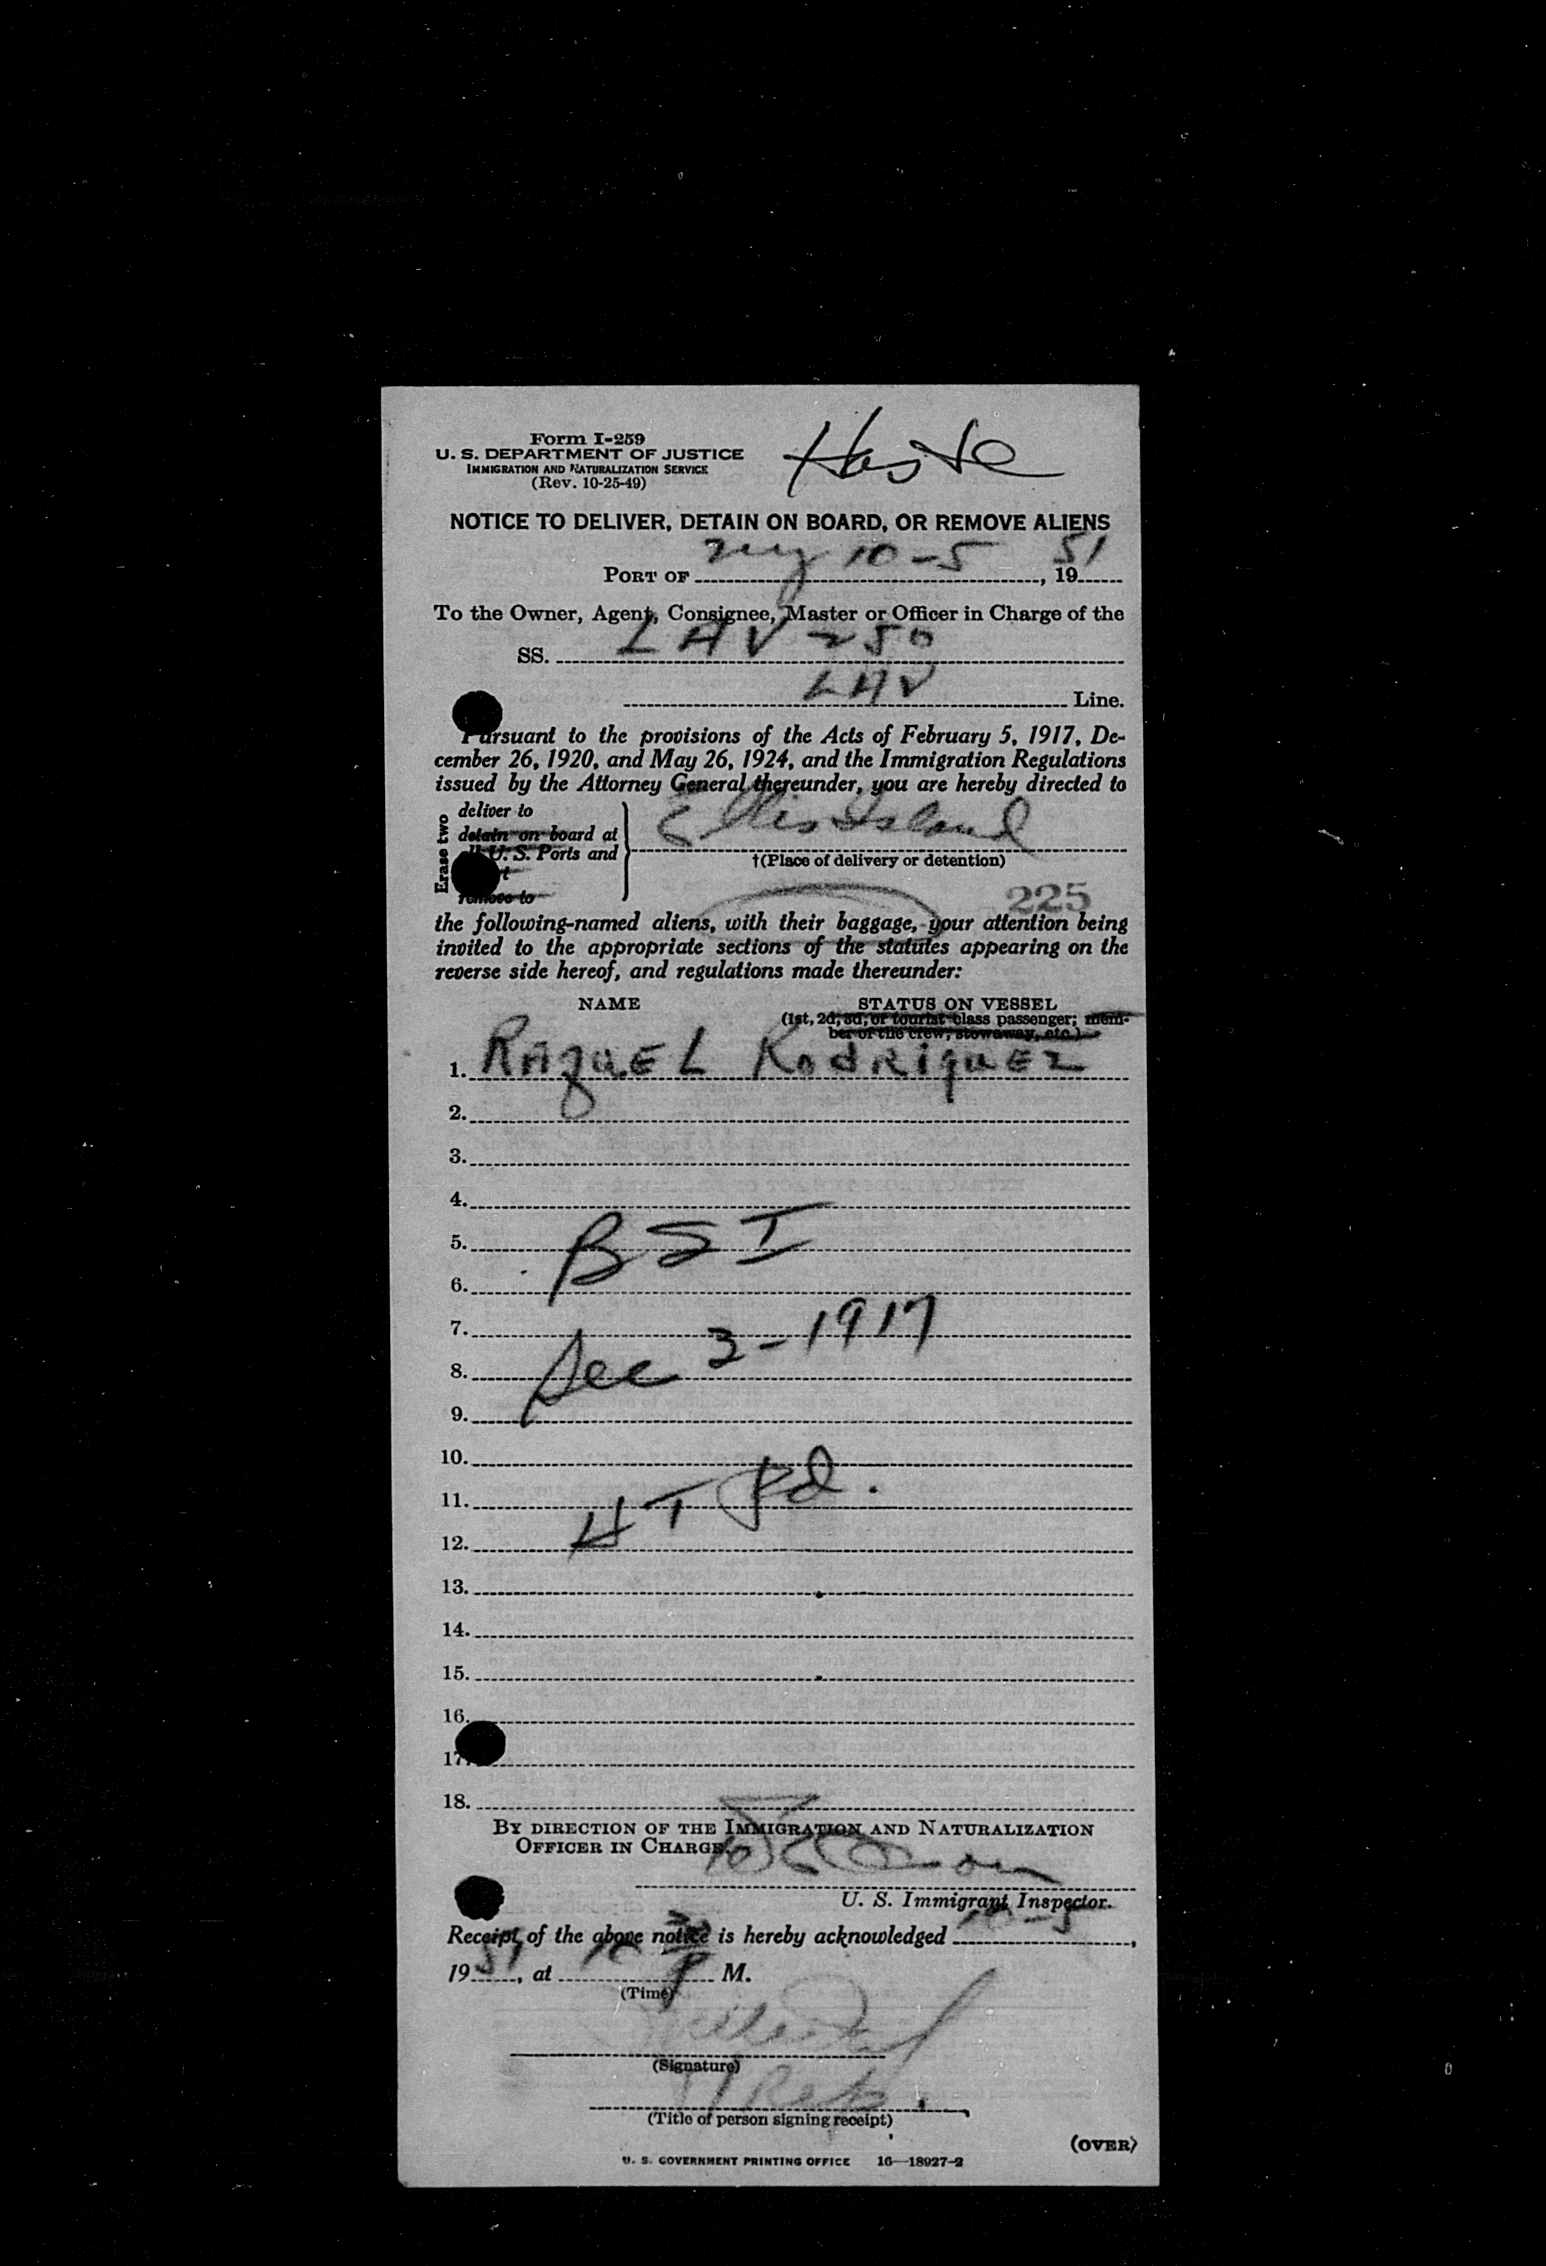 Form I-259
U. S. DEPARTMENT OF JUSTICE
IMMIGRATION AND NATURALIZATION SERVICE
(Rev. 10-25-49)
Haste
NOTICE TO DELIVER, DETAIN ON BOARD, OR REMOVE ALIENS
PORT OF NY 10-5, 1951
To the Owner, Agent, Consignee, Master or Officer in Charge of the
SS. LAV 250
LAV Line.
Pursuant to the provisions of the Acts of February 5, 1917, De-
cember 26, 1920, and May 26, 1924, and the Immigration Regulations
issued by the Attorney General thereunder, you are hereby directed to
Erase two
deliver to
detain on board at
all U. S. Ports and
remove to
Ellis Island
†(Place of delivery or detention)
225
the following-named aliens, with their baggage, your attention being
invited to the appropriate sections of the statutes appearing on the
reverse side hereof, and regulations made thereunder:
NAME STATUS ON VESSEL
(1st, 2d, 3d, or tourist class passenger; mem-
ber of the crew, stowaway, etc.)
1. RAquEL RodRiquEz
2.
3.
4.
5. BSI
6.
7.
8. Dec 3-1917
9.
10.
11. HT Pd.
12.
13.
14.
15.
16.
17.
18.
BY DIRECTION OF THE IMMIGRATION AND NATURALIZATION
OFFICER IN CHARGE.
U. S. Immigrant Inspector.
Receipt of the above notice is hereby acknowledged 10-5,
1951, at 10 30 P M.
(Time)
(Signature)
Rep.
(Title of person signing receipt)
(OVER)
U. S. GOVERNMENT PRINTING OFFICE 16—18927-2